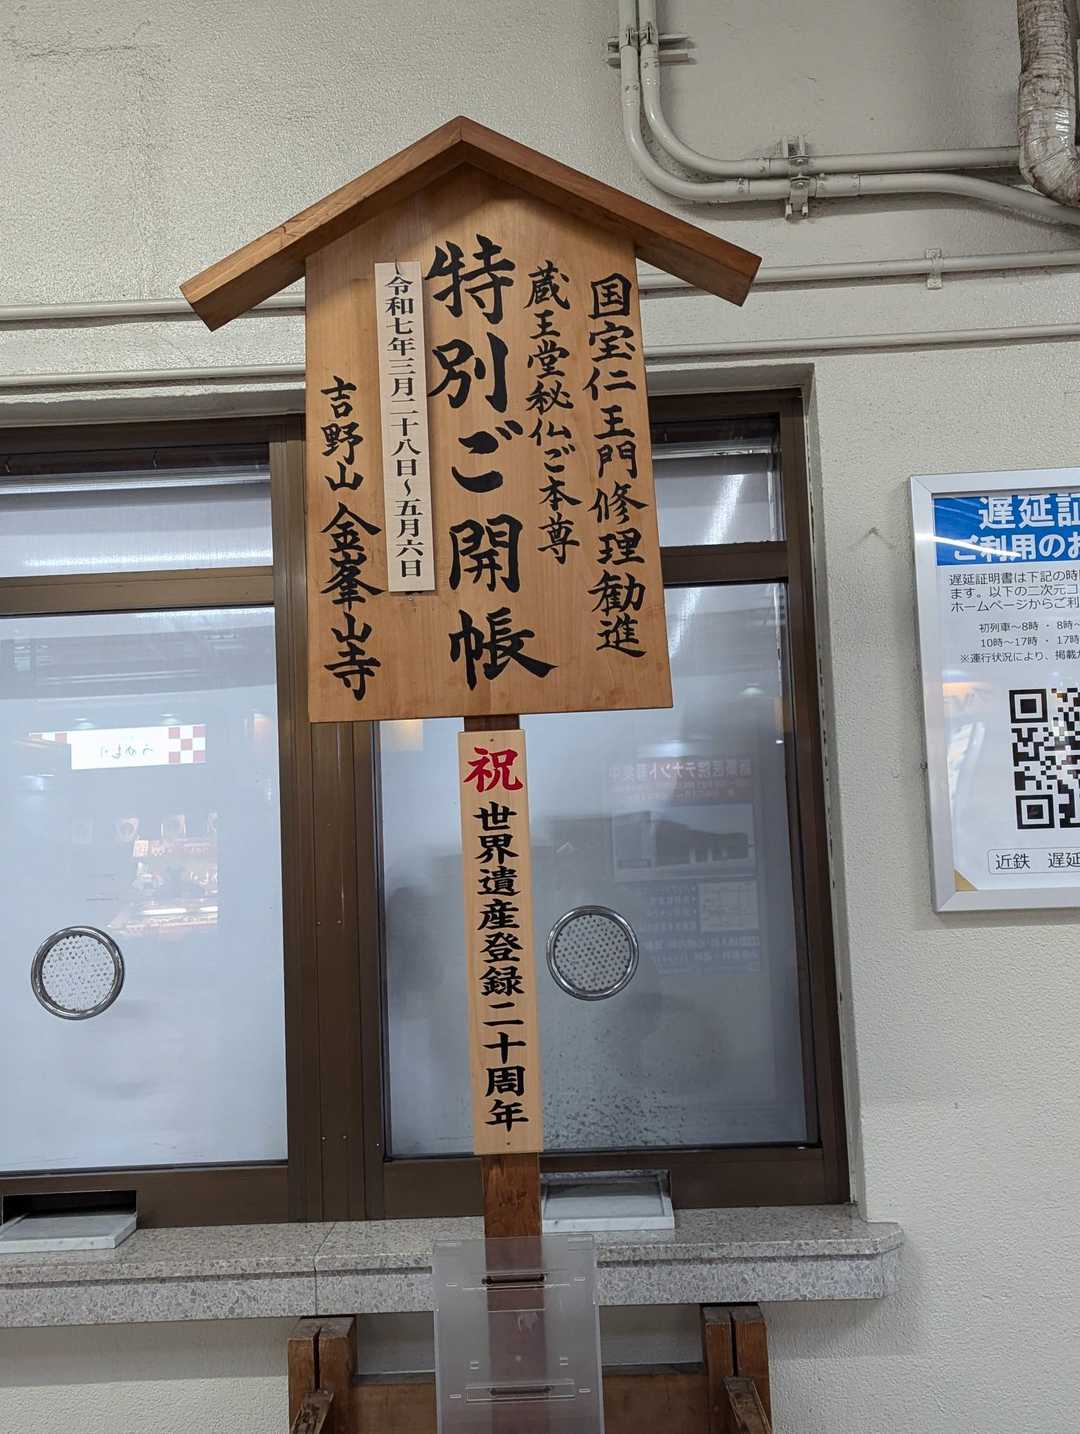 国宝仁王門修理勧進
蔵王堂秘仏ご本尊
特別ご開帳
令和七年三月二十八日~五月六日
吉野山 金峯山寺
祝 世界遺産登録二十周年
遅延証
ご利用のお
遅延証明書は下記の時
ます。以下の二次元コ
ホームページからご利
初列車~8時 ・ 8時~
10時~17時 ・ 17時
※運行状況により、掲載が
近鉄 遅延